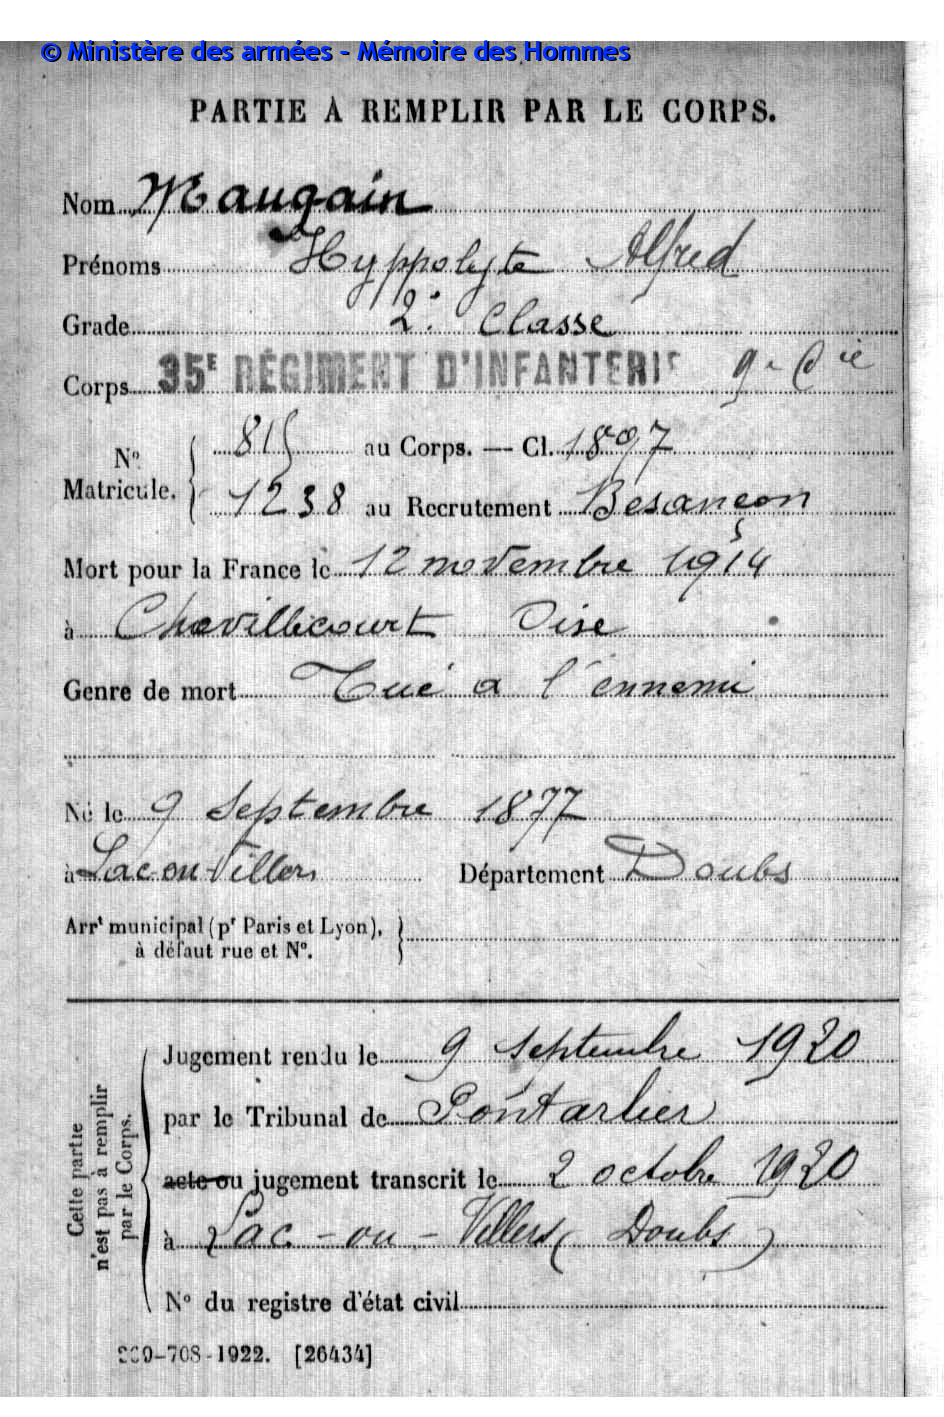 © Ministère des armées - Mémoire des Hommes
PARTIE À REMPLIR PAR LE CORPS.
Nom Maugain
Prénoms Hyppolyte Alfred
Grade 2e Classe
Corps 35E RÉGIMENT D'INFANTERIE 9e Cie
No Matricule. 815 au Corps. — Cl. 1897
1238 au Recrutement Besançon
Mort pour la France le 12 novembre 1914
à Chevillecourt Oise
Genre de mort Tué a l'ennemi
Né le 9 Septembre 1877
à Lac-ou-Villers Département Doubs
Arrt municipal (pr Paris et Lyon),
à défaut rue et No.
Cette partie
n'est pas à remplir
par le Corps.
Jugement rendu le 9 septembre 1920
par le Tribunal de Pontarlier
acte ou jugement transcrit le 2 octobre 1920
à Lac-ou-Villers (Doubs)
No du registre d'état civil
-708-1922. [26434]